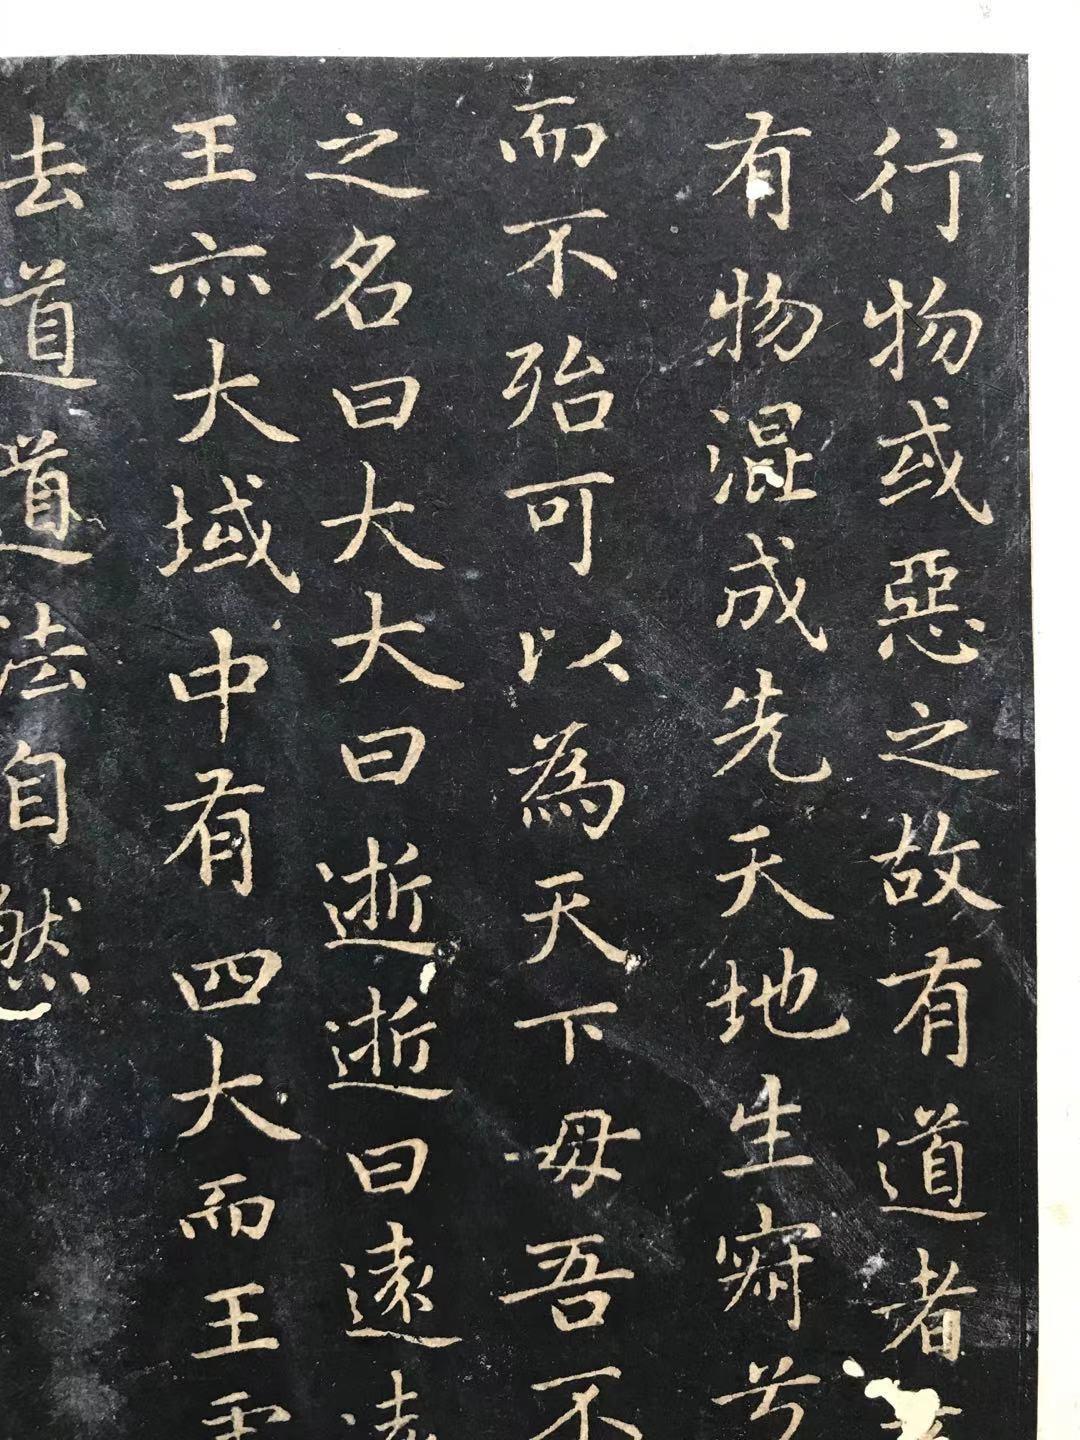 行物或惡之故有道者
有物混成先天地生寂兮
而不殆可以為天下母吾不
之名曰大大曰逝逝曰遠遠
王亦大域中有四大而王
法道道法自然